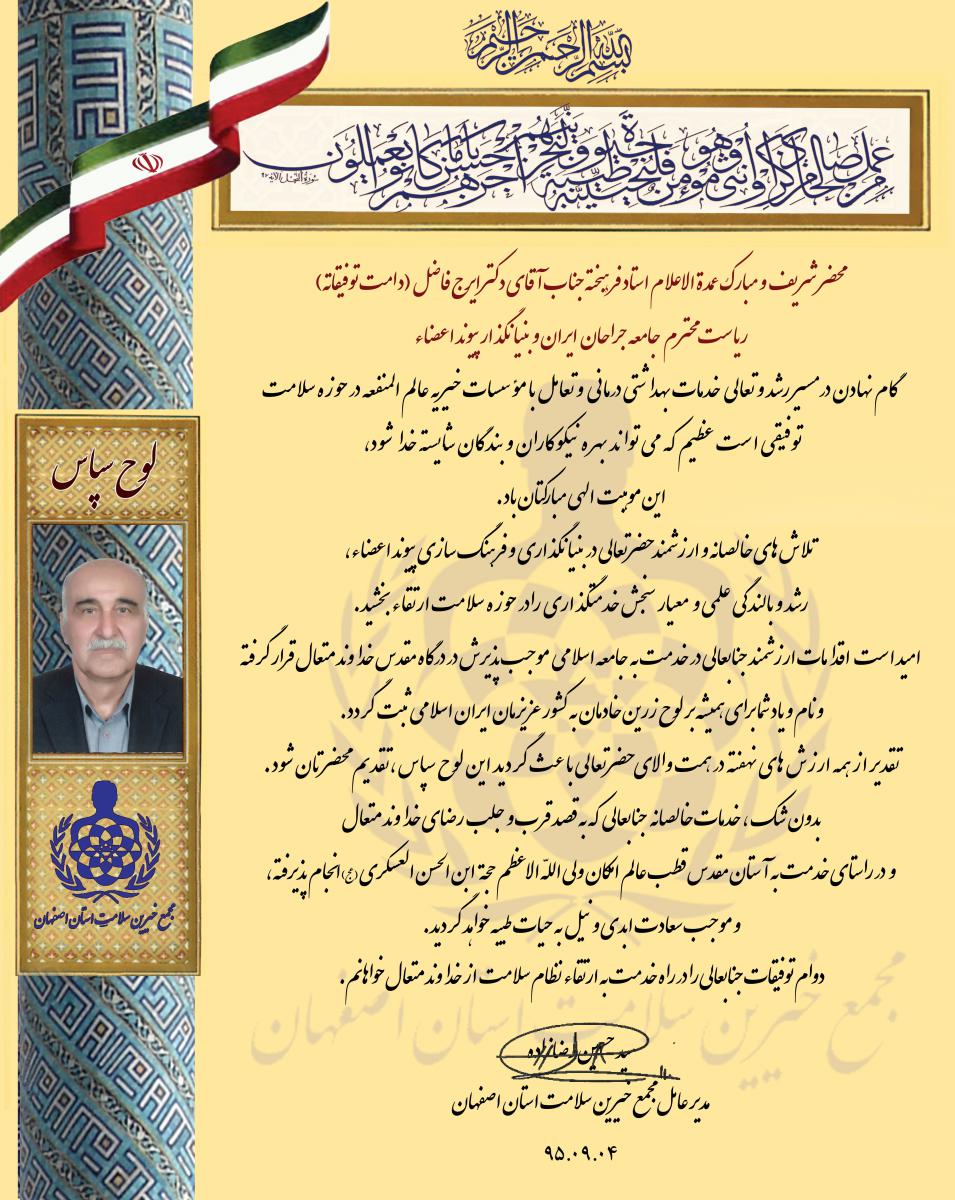 بسم الله الرحمن الرحیم
من عمل صالحا من ذکر او انثی و هو مؤمن فلنحیینه حیاة طیبة و لنجزینهم اجرهم باحسن ما کانوا یعملون
محضر شریف و مبارک عمدة الاعلام استاد فریخته جناب آقای دکتر ایرج فاضل (دامت توفیقاته)
ریاست محترم جامعه جراحان ایران و بنیانگذار پیوند اعضاء
گام نهادن در مسیر رشد و تعالی خدمات بهداشتی درمانی و تعامل با مؤسسات خیریه عالم المنفعه در حوزه سلامت
توفیقی است عظیم که می تواند بهره نیکوکاران و بندگان شایسته خدا شود،
این موهبت الهی مبارکتان باد.
تلاش های خالصانه و ارزشمند حضرتعالی در بنیانگذاری و فرهنگ سازی پیوند اعضاء،
رشد و بالندگی علمی و معیار سنجش خدمتگذاری را در حوزه سلامت ارتقاء بخشید.
امید است اقدامات ارزشمند جنابعالی در خدمت به جامعه اسلامی موجب پذیرش در درگاه مقدس خداوند متعال قرار گرفته
و نام و یاد شما برای همیشه بر لوح زرین خادمان به کشور عزیزمان ایران اسلامی ثبت گردد.
تقدیر از همه ارزش های نهفته در همت والای حضرتعالی باعث گردید این لوح سپاس، تقدیم محضرتان شود.
بدون شک، خدمات خالصانه جنابعالی که به قصد قرب و جلب رضای خداوند متعال
و در راستای خدمت به آستان مقدس قطب عالم امکان ولی الله الاعظم حجة ابن الحسن العسکری (عج) انجام پذیرفته،
و موجب سعادت ابدی و نیل به حیات طیبه خواهد گردید.
دوام توفیقات جنابعالی را در راه خدمت به ارتقاء نظام سلامت از خداوند متعال خواهانم.
سید حسین رضازاده
مدیر عامل مجمع خیرین سلامت استان اصفهان
۹۵.۰۹.۰۴
لوح سپاس
مجمع خیرین سلامت استان اصفهان
مجمع خیرین سلامت استان اصفهان